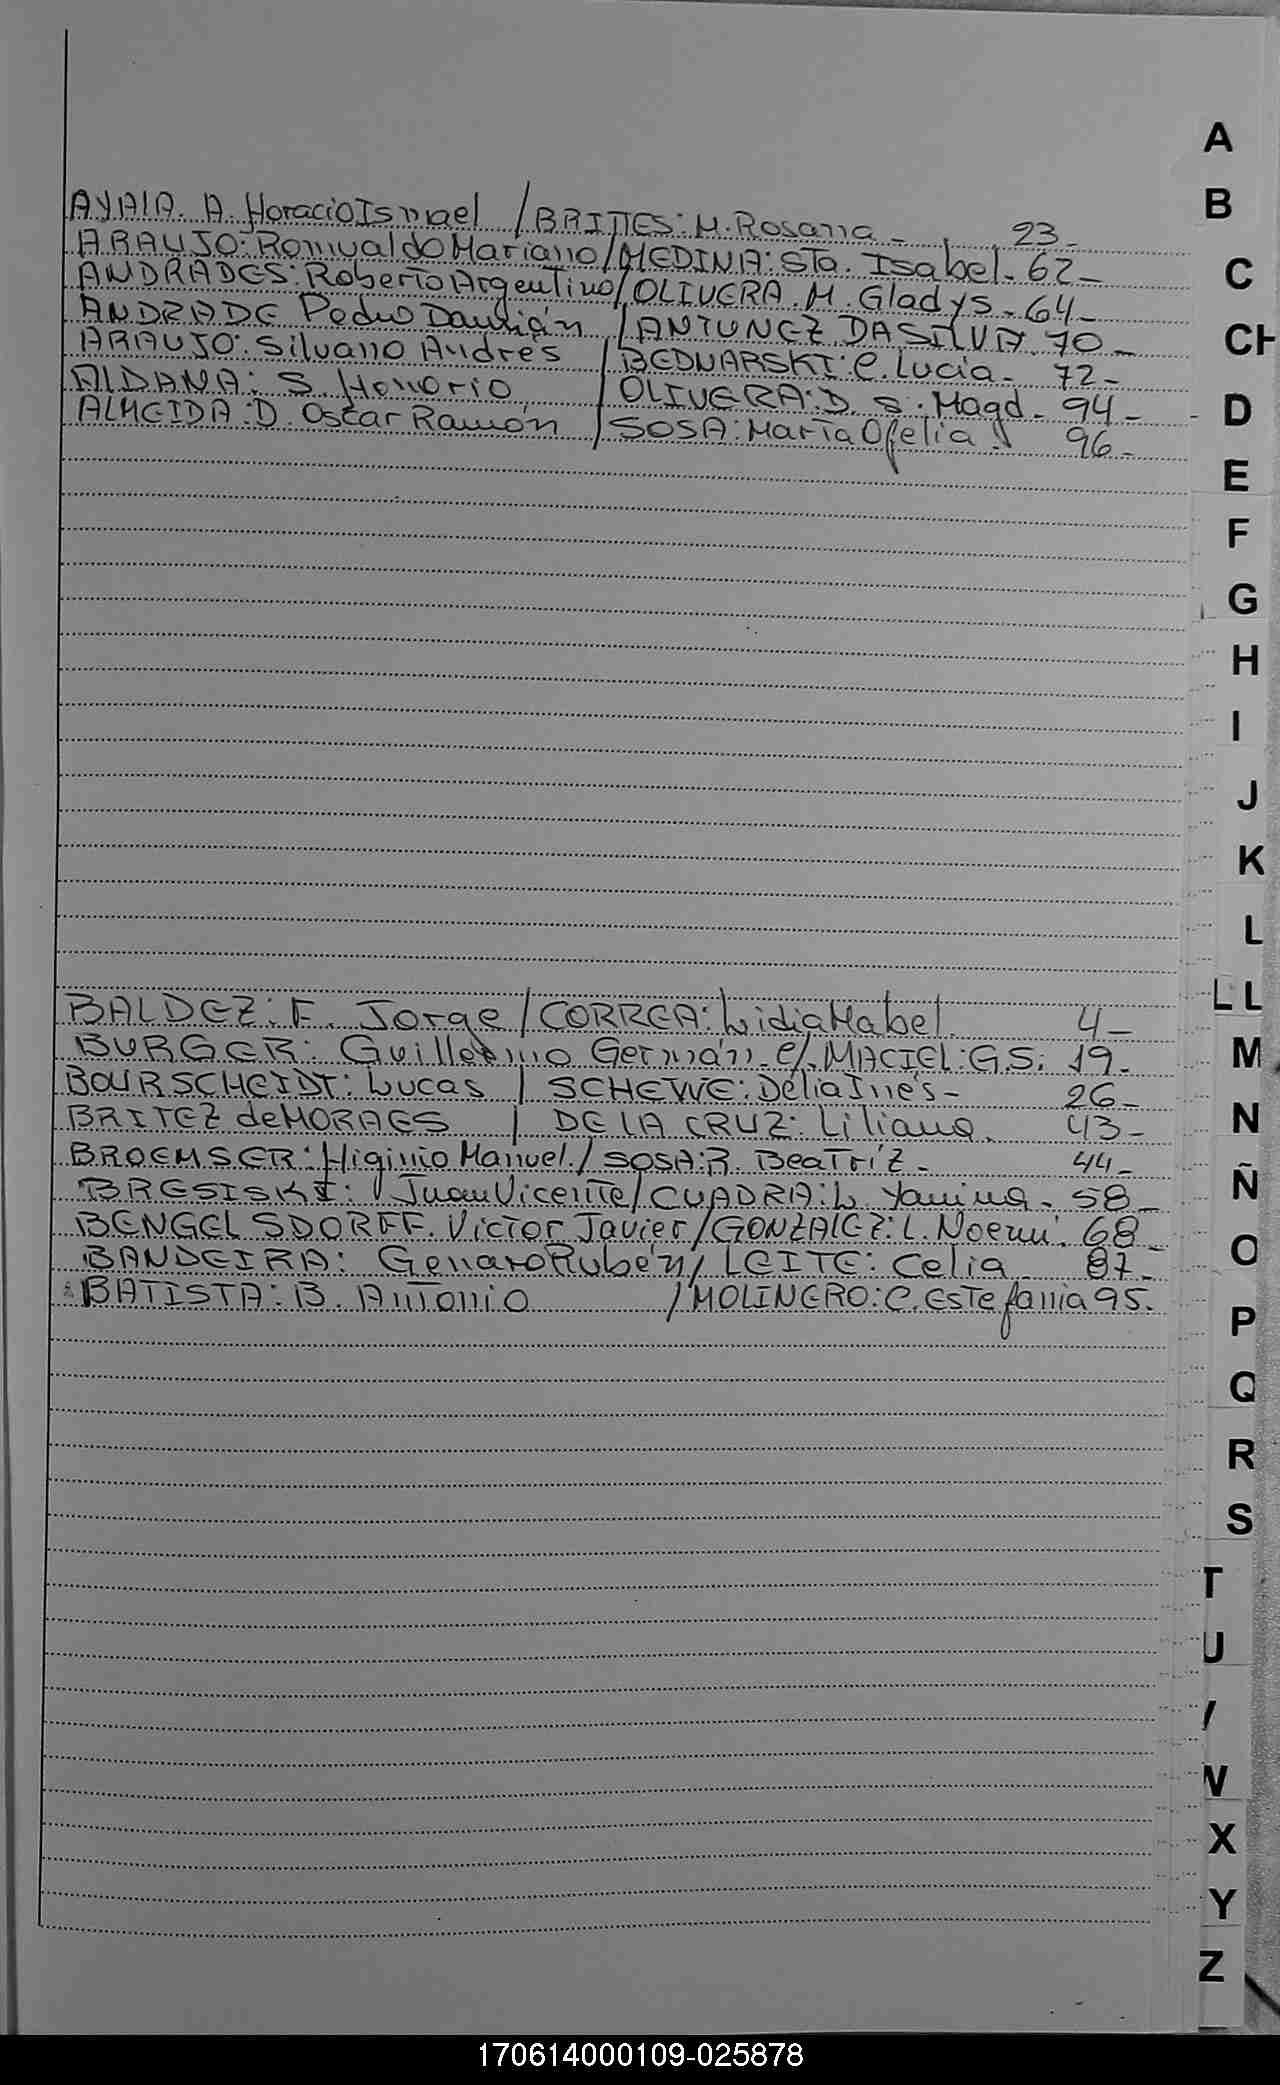 AYALA. A. Horacio Ismael / BRITTES: M. Rosana - 23 -
ARAUJO: Romualdo Mariano / MEDINA: Sta. Isabel - 62 -
ANDRADES: Roberto Argentino / OLIVERA. M. Gladys - 64 -
ANDRADE Pedro Damián / ANTUNEZ DA SILVA 70 -
ARAUJO: Silvano Andrés / BEDNARSKI: C. Lucia - 72 -
ALDANA: S. Honorio / OLIVERA: D. S. Magd - 94 -
ALMEIDA: D. Oscar Ramón / SOSA: María Ofelia 96 -
BALDEZ: F. Jorge / CORREA: Lidia Mabel. 4 -
BURGER: Guillermo Germán e/. MACIEL: G.S. 19 -
BOURSCHEIDT: Lucas / SCHEWE: Delia Inés - 26 -
BRITEZ de MORAES / DE LA CRUZ: Liliana. 43 -
BROEMSER: Higinio Manuel. / SOSA: R. Beatríz - 44 -
BRESISKI: Juan Vicente / CUADRA: L. Yanina - 58 -
BENGELSDORFF. Victor Javier / GONZALEZ: L. Noemi. 68 -
BANDEIRA: Genaro Rubén / LEITE: Celia 87 -
BATISTA: B. Antonio / MOLINERO: C. Estefania 95.
A
B
C
CH
D
E
F
G
H
I
J
K
L
LL
M
N
Ñ
O
P
Q
R
S
T
U
V
W
X
Y
Z
170614000109-025878